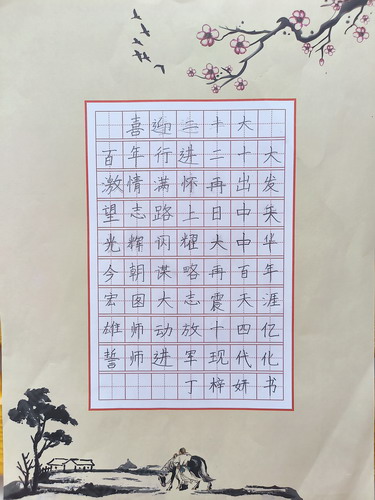 喜迎二十大
百年行进二十大
激情满怀再出发
望志路上日中央
光辉闪耀大中华
今朝谋略再百年
宏图大志震天涯
雄师动放十四亿
誓师进军现代化
丁梓妍书